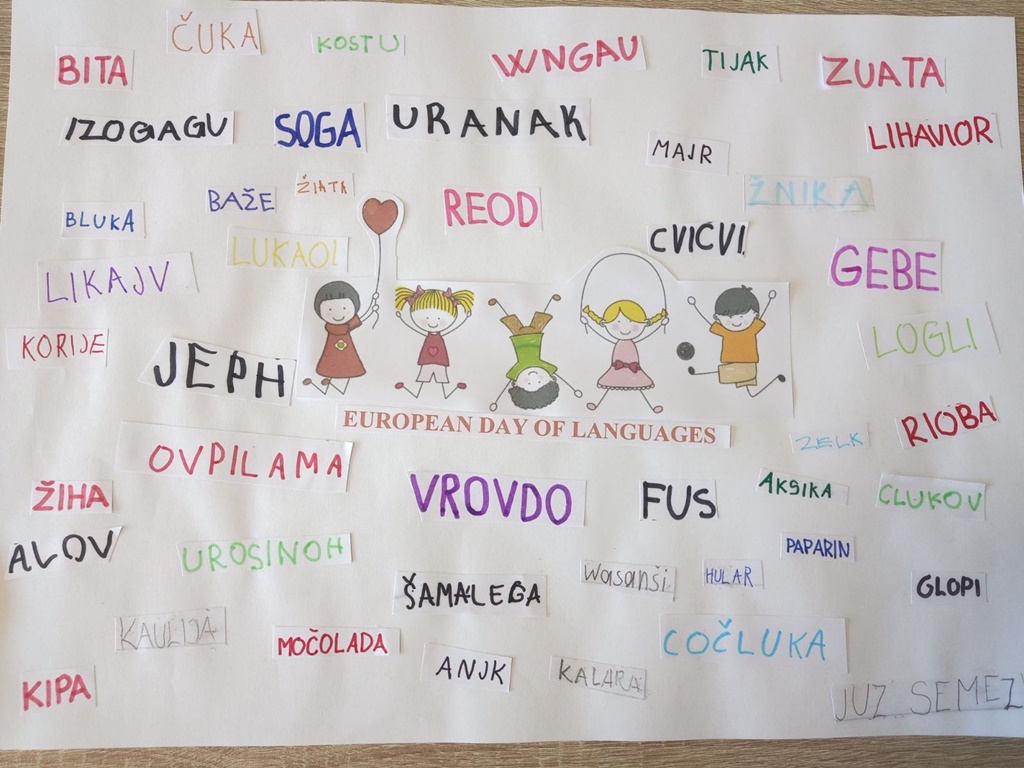 ČUKA
KOSTU
BITA
WNGAU
TIJAK
ZUATA
IZOGAGU
SOGA
URANAK
MAJR
LIHAVIOR
ŽIATA
BAŽE
ŽNIKA
BLUKA
REOD
LUKAOI
CVICVI
GEBE
LIKAJV
KORIJE
LOGLI
JEPH
EUROPEAN DAY OF LANGUAGES
RIOBA
ZELK
OVPILAMA
ŽIHA
VROVDO
FUS
AKSIKA
CLUKOV
ALOV
UROSINOH
PAPARIN
ŠAMALEGA
Wasanši
HULAR
GLOPI
MOČOLADA
COČLUKA
ANJK
KALARA
KIPA
JUZ SEMEZ